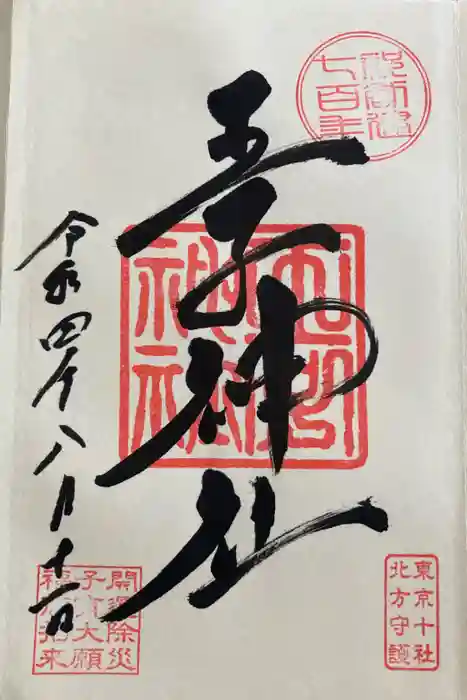 御創建
七百年
王子神社
王子神社
令和四年八月十一日
東京十社
北方守護
開運除災
子育大願
福徳招来